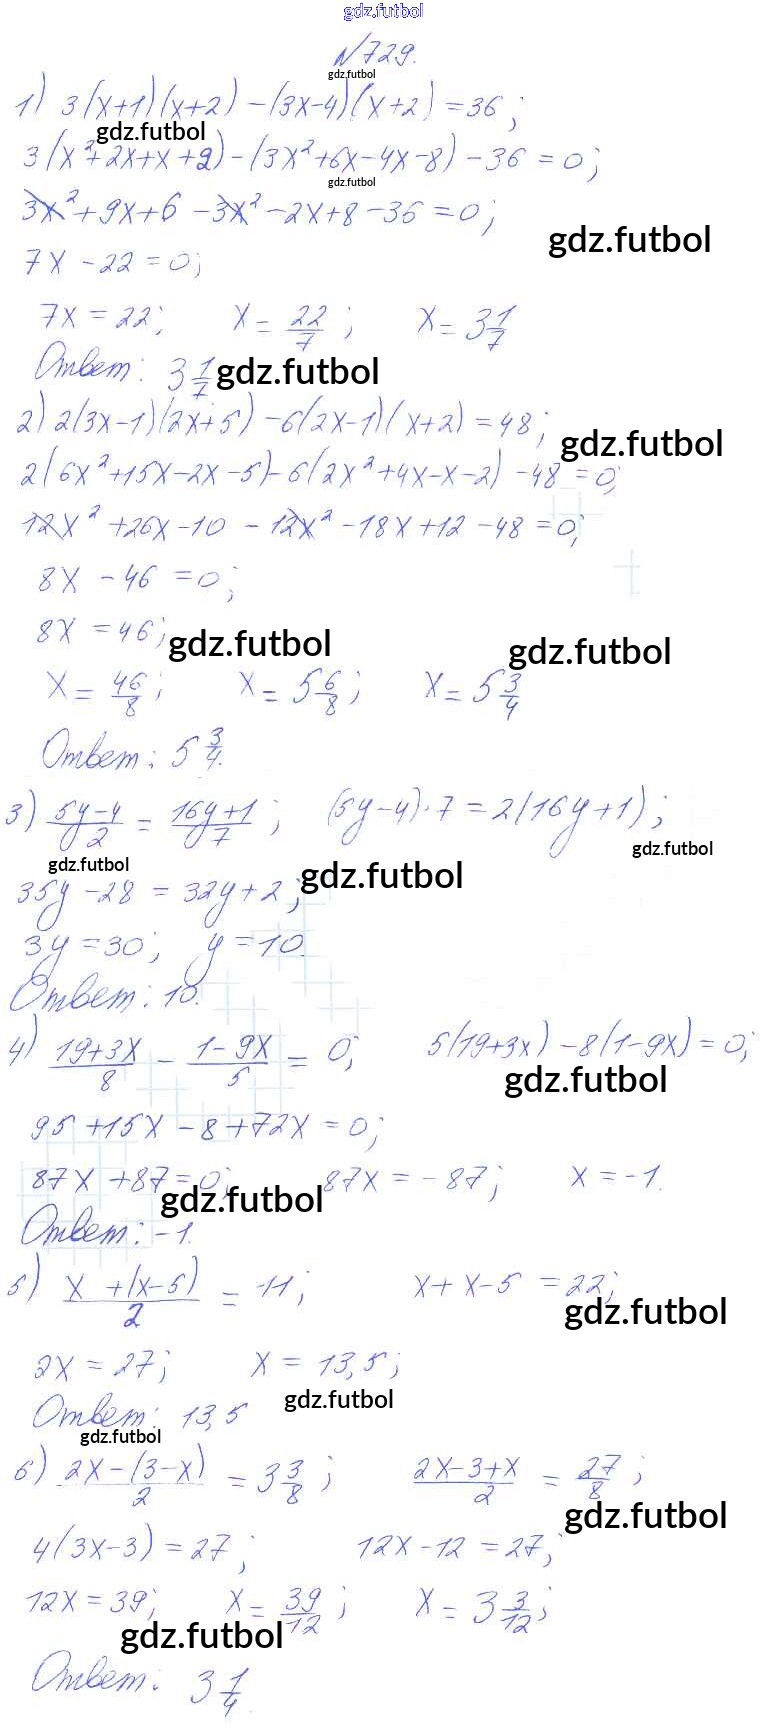 gdz.futbol
N729.
gdz.futbol
1) 3(x+1)(x+2) - (3x-4)(x+2) = 36;
gdz.futbol
3(x²+2x+x+2) - (3x²+6x-4x-8) - 36 = 0;
gdz.futbol
3x²+9x+6 - 3x² - 2x+8 - 36 = 0;
gdz.futbol
7x - 22 = 0;
7x = 22; x = 22/7; x = 3 1/7
Ответ: 3 1/7
gdz.futbol
2) 2(3x-1)(2x+5) - 6(2x-1)(x+2) = 48;
gdz.futbol
2(6x²+15x-2x-5) - 6(2x²+4x-x-2) - 48 = 0;
12x² + 26x - 10 - 12x² - 18x + 12 - 48 = 0;
8x - 46 = 0;
8x = 46;
gdz.futbol
gdz.futbol
x = 46/8; x = 5 6/8; x = 5 3/4
Ответ: 5 3/4.
3) (5y-4)/2 = (16y+1)/7; (5y-4)·7 = 2(16y+1);
gdz.futbol
gdz.futbol
gdz.futbol
35y - 28 = 32y + 2;
3y = 30; y = 10.
Ответ: 10.
4) (19+3x)/8 - (1-9x)/5 = 0; 5(19+3x) - 8(1-9x) = 0;
gdz.futbol
95 + 15x - 8 + 72x = 0;
87x + 87 = 0; 87x = -87; x = -1.
gdz.futbol
Ответ: -1.
5) (x + (x-5))/2 = 11; x + x - 5 = 22;
gdz.futbol
2x = 27; x = 13,5;
gdz.futbol
Ответ: 13,5
gdz.futbol
6) (2x - (3-x))/2 = 3 3/8; (2x-3+x)/2 = 27/8;
gdz.futbol
4(3x-3) = 27; 12x - 12 = 27;
12x = 39; x = 39/12; x = 3 3/12;
gdz.futbol
Ответ: 3 1/4.